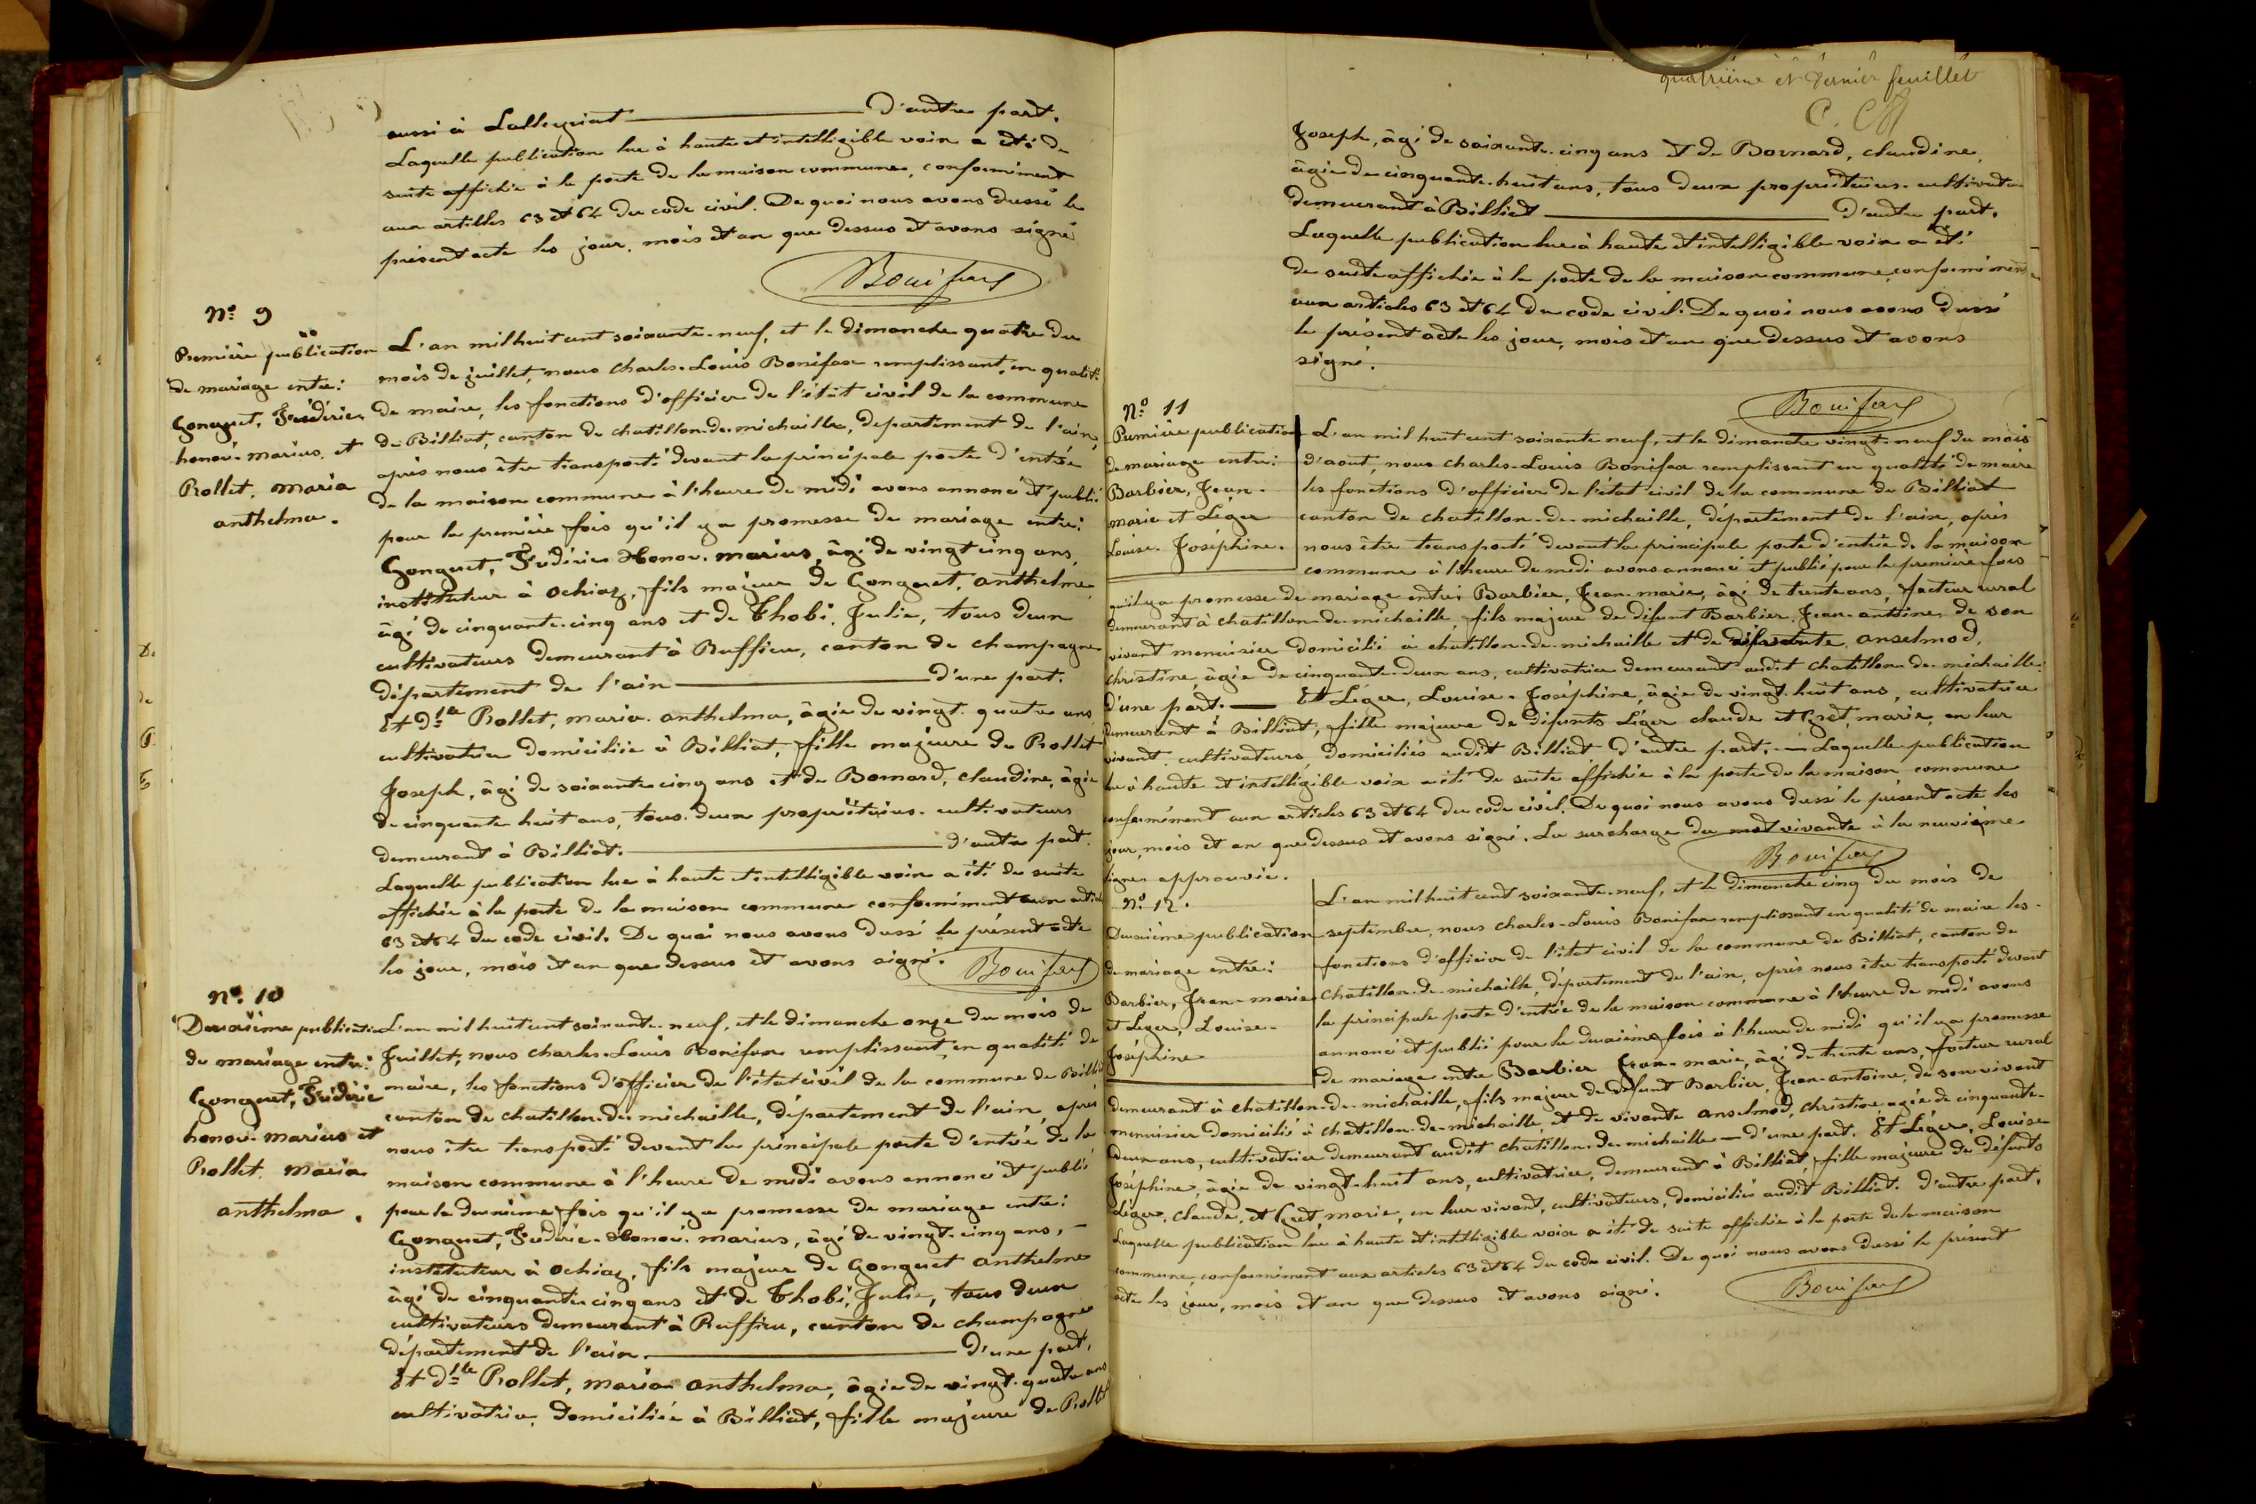 aussi à Lallegriat d'autre part.
Laquelle publication lue à haute et intelligible voix a été de
suite affichée à la porte de la maison commune, conformément
aux articles 63 et 64 du code civil. De quoi nous avons dressé le
présent acte les jour, mois et an que dessus et avons signé
Bonifax
N.º 9
Première publication
de mariage entre:
Gonguet, Frédéric
honoré-marius, et
Rollet, maria
anthelma.
L'an mil huit cent soixante-neuf, et le dimanche quatre du
mois de juillet, nous charles-Louis Bonifax remplissant, en qualité
de maire, les fonctions d'officier de l'état civil de la commune
de Billiat, canton de chatillon-de-michaille, département de l'ain,
après nous être transporté devant la principale porte d'entrée
de la maison commune à l'heure de midi avons annoncé et publié
pour la première fois qu'il y a promesse de mariage entre:
Gonguet, Frédéric-Honoré-marius, âgé de vingt cinq ans,
instituteur à ochiaz, fils majeur de Gonguet, anthelme,
âgé de cinquante-cinq ans et de Thobi, Julie, tous deux
cultivateurs demeurant à Ruffieu, canton de champagne
département de l'ain d'une part.
Et d.lle Rollet, maria-anthelma, âgée de vingt-quatre ans,
cultivatrice domiciliée à Billiat, fille majeure de Rollet
Joseph, âgé de soixante cinq ans et de Bornard, claudine, âgée
de cinquante huit ans, tous deux propriétaires-cultivateurs
demeurant à Billiat. d'autre part.
Laquelle publication lue à haute et intelligible voix a été de suite
affichée à la porte de la maison commune conformément aux articles
63 et 64 du code civil. De quoi nous avons dressé le présent acte
les jour, mois et an que dessus et avons signé.
Bonifax
N.º 10
Deuxième publication
de mariage entre:
Gonguet, Frédéric
honoré-marius et
Rollet, maria
anthelma.
L'an mil huit cent soixante-neuf, et le dimanche onze du mois de
Juillet, nous charles-Louis Bonifax remplissant, en qualité de
maire, les fonctions d'officier de l'état civil de la commune de Billiat
canton de chatillon-de-michaille, département de l'ain, après
nous être transporté devant la principale porte d'entrée de la
maison commune à l'heure de midi avons annoncé et publié
pour la deuxième fois qu'il y a promesse de mariage entre:
Gonguet, Frédéric-Honoré-marius, âgé de vingt-cinq ans,
instituteur à ochiaz, fils majeur de Gonguet anthelme
âgé de cinquante cinq ans et de Thobi, Julie, tous deux
cultivateurs demeurant à Ruffieu, canton de champagne
département de l'ain. d'une part,
Et d.lle Rollet, maria anthelma, âgée de vingt-quatre ans
cultivatrice, domiciliée à Billiat, fille majeure de Rollet
quatrième et dernier feuillet
Joseph, âgé de soixante-cinq ans et de Bornard, claudine,
âgée de cinquante-huit ans, tous deux propriétaires-cultivateurs
demeurant à Billiat d'autre part.
Laquelle publication lue à haute et intelligible voix a été
de suite affichée à la porte de la maison commune, conformément
aux articles 63 et 64 du code civil. De quoi nous avons dressé
le présent acte les jour, mois et an que dessus et avons
signé.
Bonifax
N.º 11
Première publication
de mariage entre:
Barbier, Jean-
marie et Léger
Louise-Joséphine.
L'an mil huit cent soixante neuf, et le dimanche vingt-neuf du mois
d'aout, nous charles-Louis Bonifax remplissant en qualité de maire
les fonctions d'officier de l'état civil de la commune de Billiat
canton de chatillon-de-michaille, département de l'ain, après
nous être transporté devant la principale porte d'entrée de la maison
commune à l'heure de midi avons annoncé et publié pour la première fois
qu'il y a promesse de mariage entre: Barbier, Jean-marie, âgé de trente ans, facteur rural
demeurant à chatillon-de-michaille, fils majeur de défunt Barbier, Jean-antoine, de son
vivant menuisier domicilié à chatillon-de-michaille et de vivante anselmod,
christine, âgée de cinquante-deux ans, cultivatrice demeurant audit chatillon-de-michaille
d'une part. Et Léger, Louise-Joséphine, âgée de vingt-huit ans, cultivatrice
demeurant à Billiat, fille majeure de défunts Léger claude et Gret, marie, en leur
vivant, cultivateurs, domiciliés audit Billiat d'autre part. Laquelle publication
lue à haute et intelligible voix a été de suite affichée à la porte de la maison commune
conformément aux articles 63 et 64 du code civil. De quoi nous avons dressé le présent acte les
jour, mois et an que dessus et avons signé. La surcharge du mot vivante à la neuvième
ligne approuvée.
Bonifax
N.º 12.
Deuxième publication
de mariage entre:
Barbier, Jean-marie
et Léger, Louise-
Joséphine
L'an mil huit cent soixante-neuf, et le dimanche cinq du mois de
septembre, nous charles-Louis Bonifax remplissant en qualité de maire les
fonctions d'officier de l'état civil de la commune de Billiat, canton de
Chatillon-de-michaille, département de l'ain, après nous être transporté devant
la principale porte d'entrée de la maison commune à l'heure de midi avons
annoncé et publié pour la deuxième fois à l'heure de midi qu'il y a promesse
de mariage entre Barbier Jean-marie, âgé de trente ans, facteur rural
demeurant à chatillon-de-michaille, fils majeur de défunt Barbier, Jean-antoine, de son vivant
menuisier domicilié à chatillon-de-michaille, et de vivante anselmod, christine agée de cinquante-
deux ans, cultivatrice demeurant audit chatillon-de-michaille d'une part. Et Léger, Louise
Joséphine, âgée de vingt-huit ans, cultivatrice, demeurant à Billiat, fille majeure de défunts
Léger, claude, et Gret, marie, en leur vivant, cultivateurs, domiciliés audit Billiat. d'autre part.
Laquelle publication lue à haute et intelligible voix a été de suite affichée à la porte de la maison
commune, conformément aux articles 63 et 64 du code civil. De quoi nous avons dressé le présent
acte les jour, mois et an que dessus et avons signé.
Bonifax